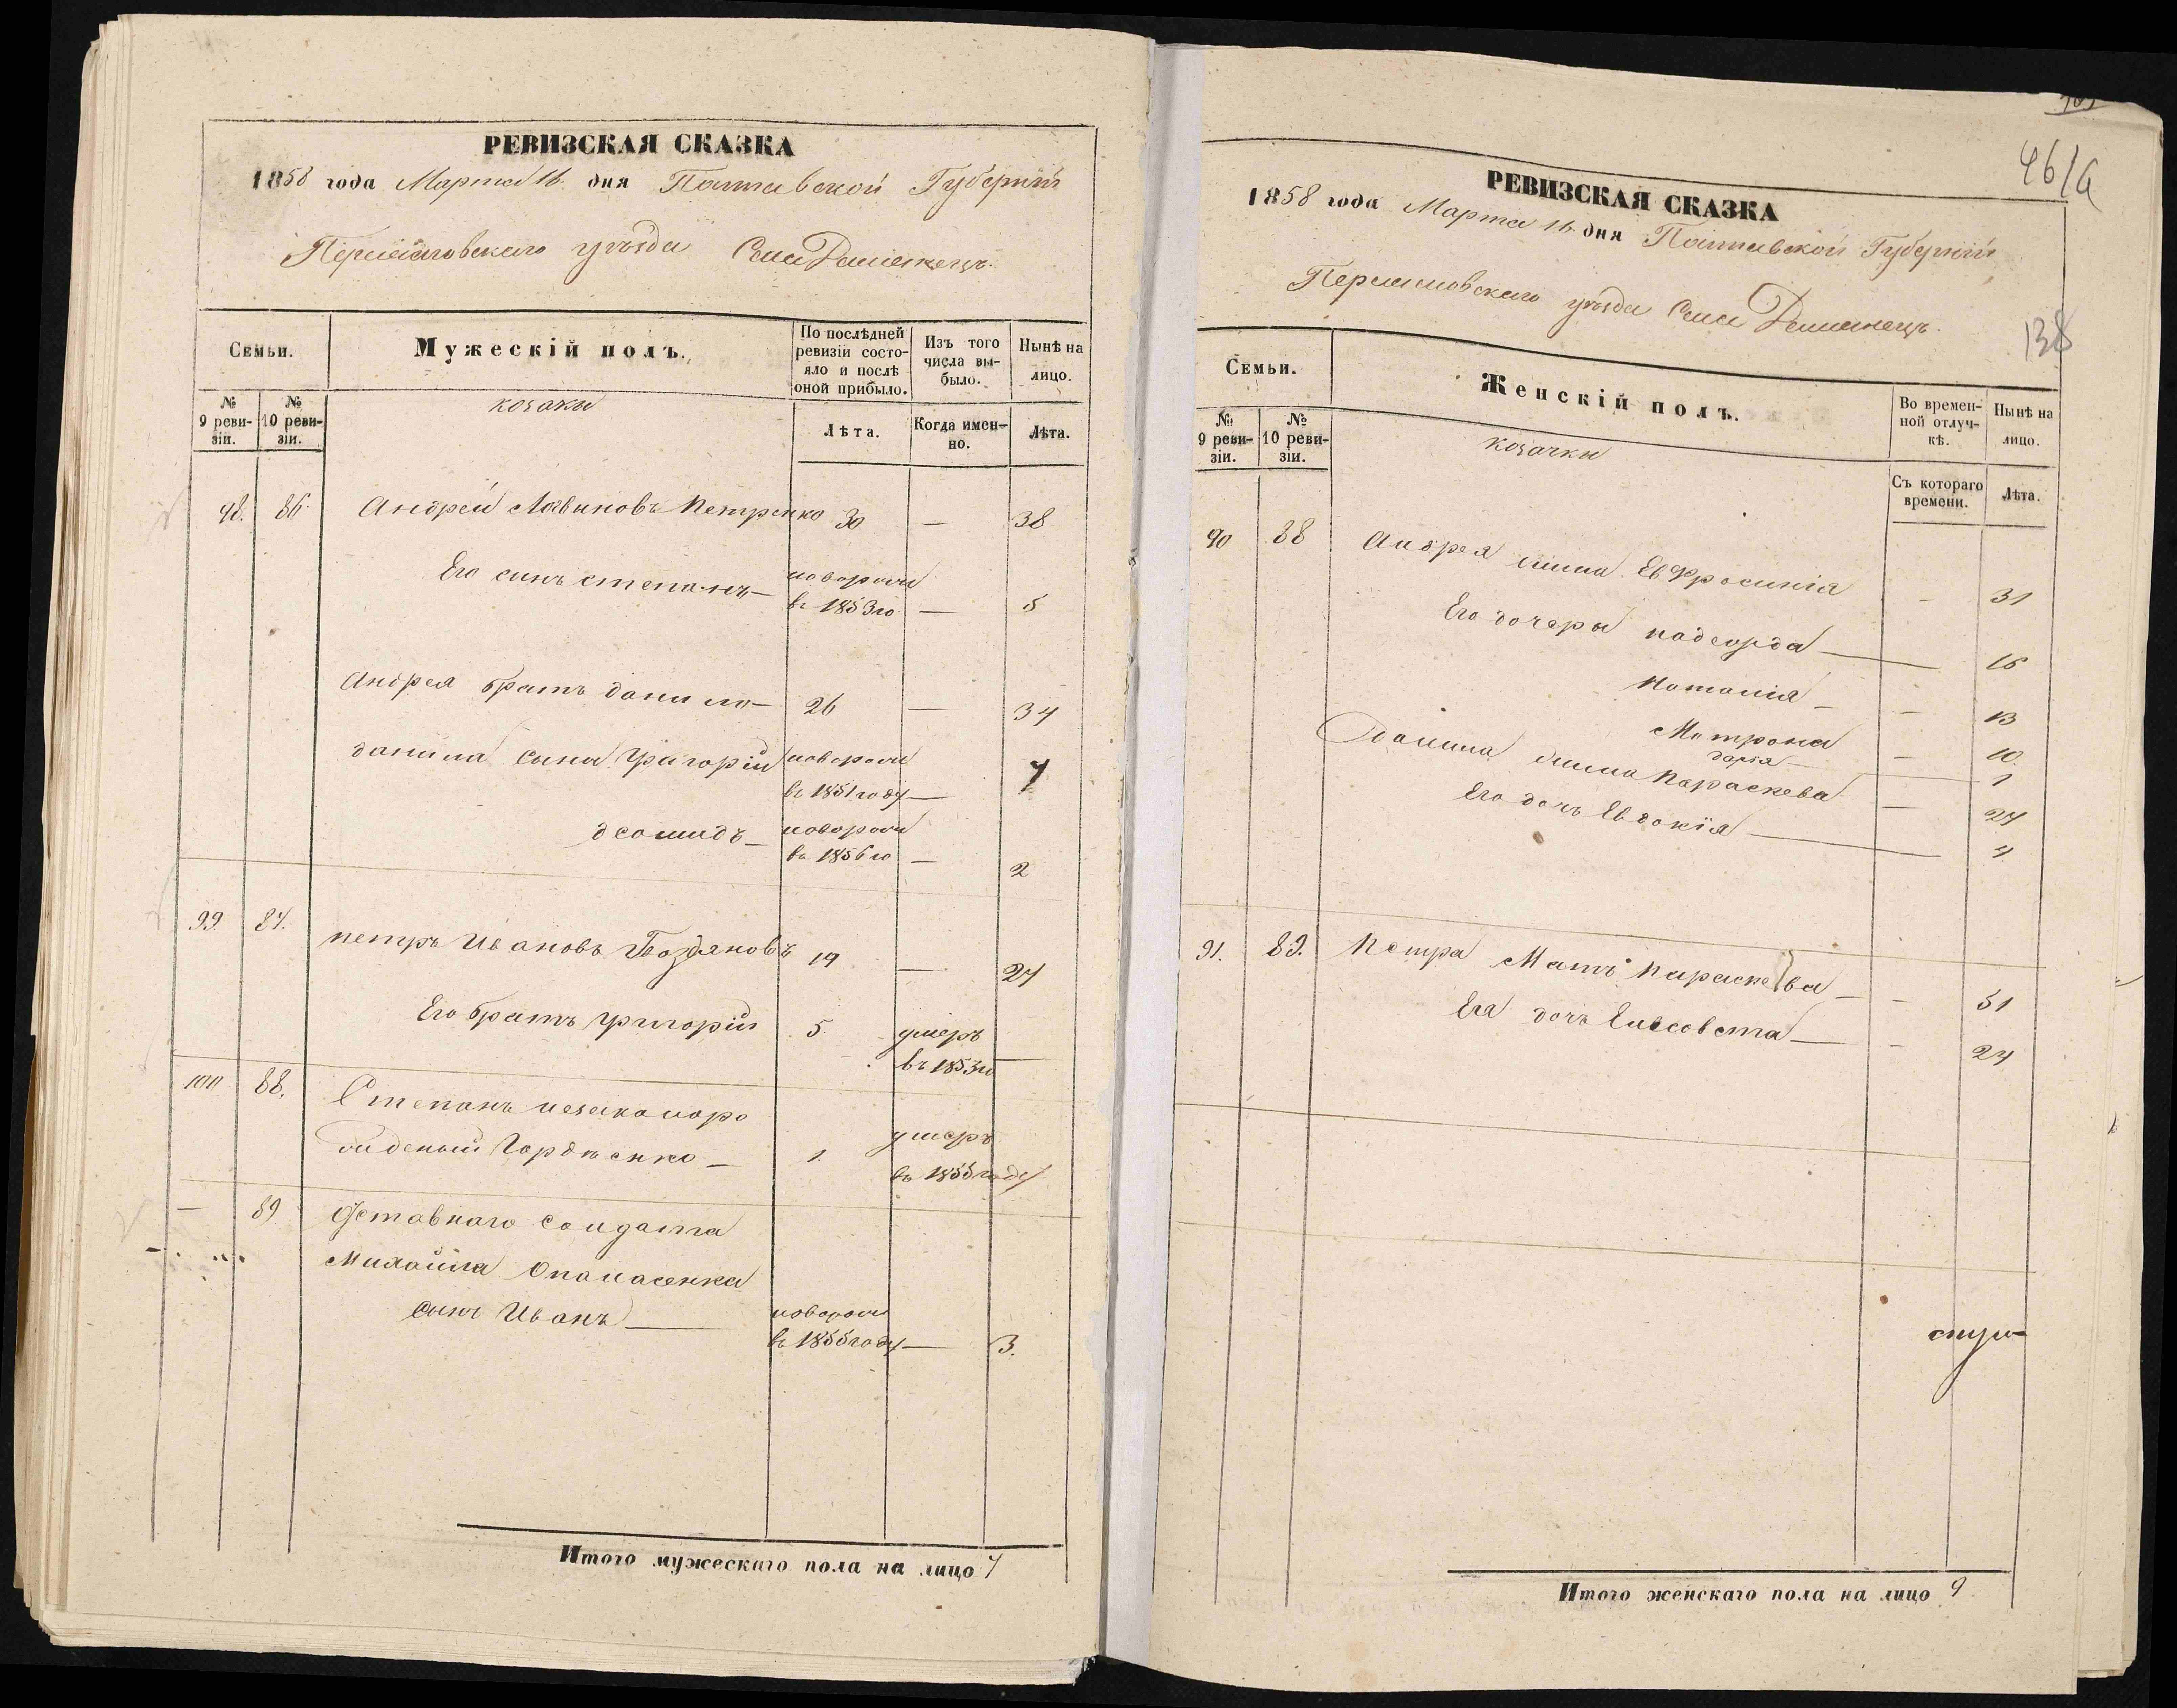 РЕВИЗСКАЯ СКАЗКА
1858 года Марта 16. дня Полтавской Губерніи
Переяславскаго уѣзда Села Демянецъ
Семьи.
Мужескій полъ.
По послѣдней ревизіи состояло и послѣ оной прибыло.
Изъ того числа выбыло.
Нынѣ на лицо.
№ 9 ревизіи.
№ 10 ревизіи.
козаки
Лѣта.
Когда именно.
Лѣта.
98. 86. Андрей Логвиновъ Петренко 30 — 38
Его синъ степанъ — новорожд
въ 1853 го — 5
Андрея братъ данило — 26 — 34
данила сына Григорій новорожд
въ 1851 году — 7
деомидъ — новорожд
въ 1856 го — 2
99. 87. петръ Ивановъ 19 — 27
Его братъ григорій 5. умеръ
въ 1853 го —
100 88. Степанъ незакноро
жденый Гордѣенко — 1. умеръ
въ 1855 году
— 89 Отставнаго солдата
Михайла Опанасенка
сынъ Иванъ — новорожд
въ 1855 году — 3.
Итого мужескаго пола на лицо 7
46/а
138
РЕВИЗСКАЯ СКАЗКА
1858 года Марта 16. дня Полтавской Губерніи
Переяславскаго уѣзда Села Демянецъ.
Семьи.
Женскій полъ.
Во временной отлучкѣ.
Нынѣ на лицо.
№ 9 ревизіи.
№ 10 ревизіи.
козачки
Съ котораго времени.
Лѣта.
90 88 Андрея жина Евфросинія — 31
Его дочеры 16
Наталія — — 13
Мотрона — 10
дарія — 1
данила жина Параскева — 27
Его дочь Евдокія — 4
91. 89. Петра Мать параскева — — 51
Ега дочь Елисовета — — 24
Итого женскаго пола на лицо 9